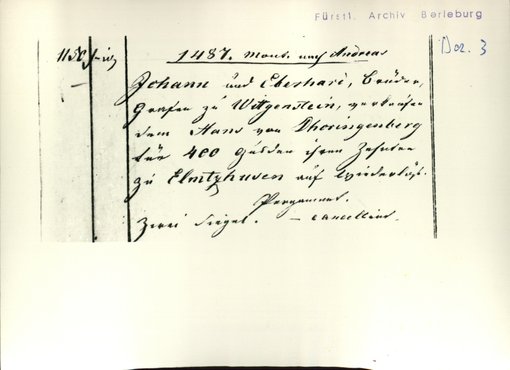 Fürstl. Archiv Berleburg
Doz. 3
1487. Mont. nach Andreas
Johann und Eberhart, Brüder,
Grafen zu Wittgenstein, verkaufen
dem Hans von Dhoringenberg
für 400 Gulden ihren Zehnten
zu Elmtzhusen auf Wiederlös.
Pergament.
Zwei Siegel. – cancellirt.